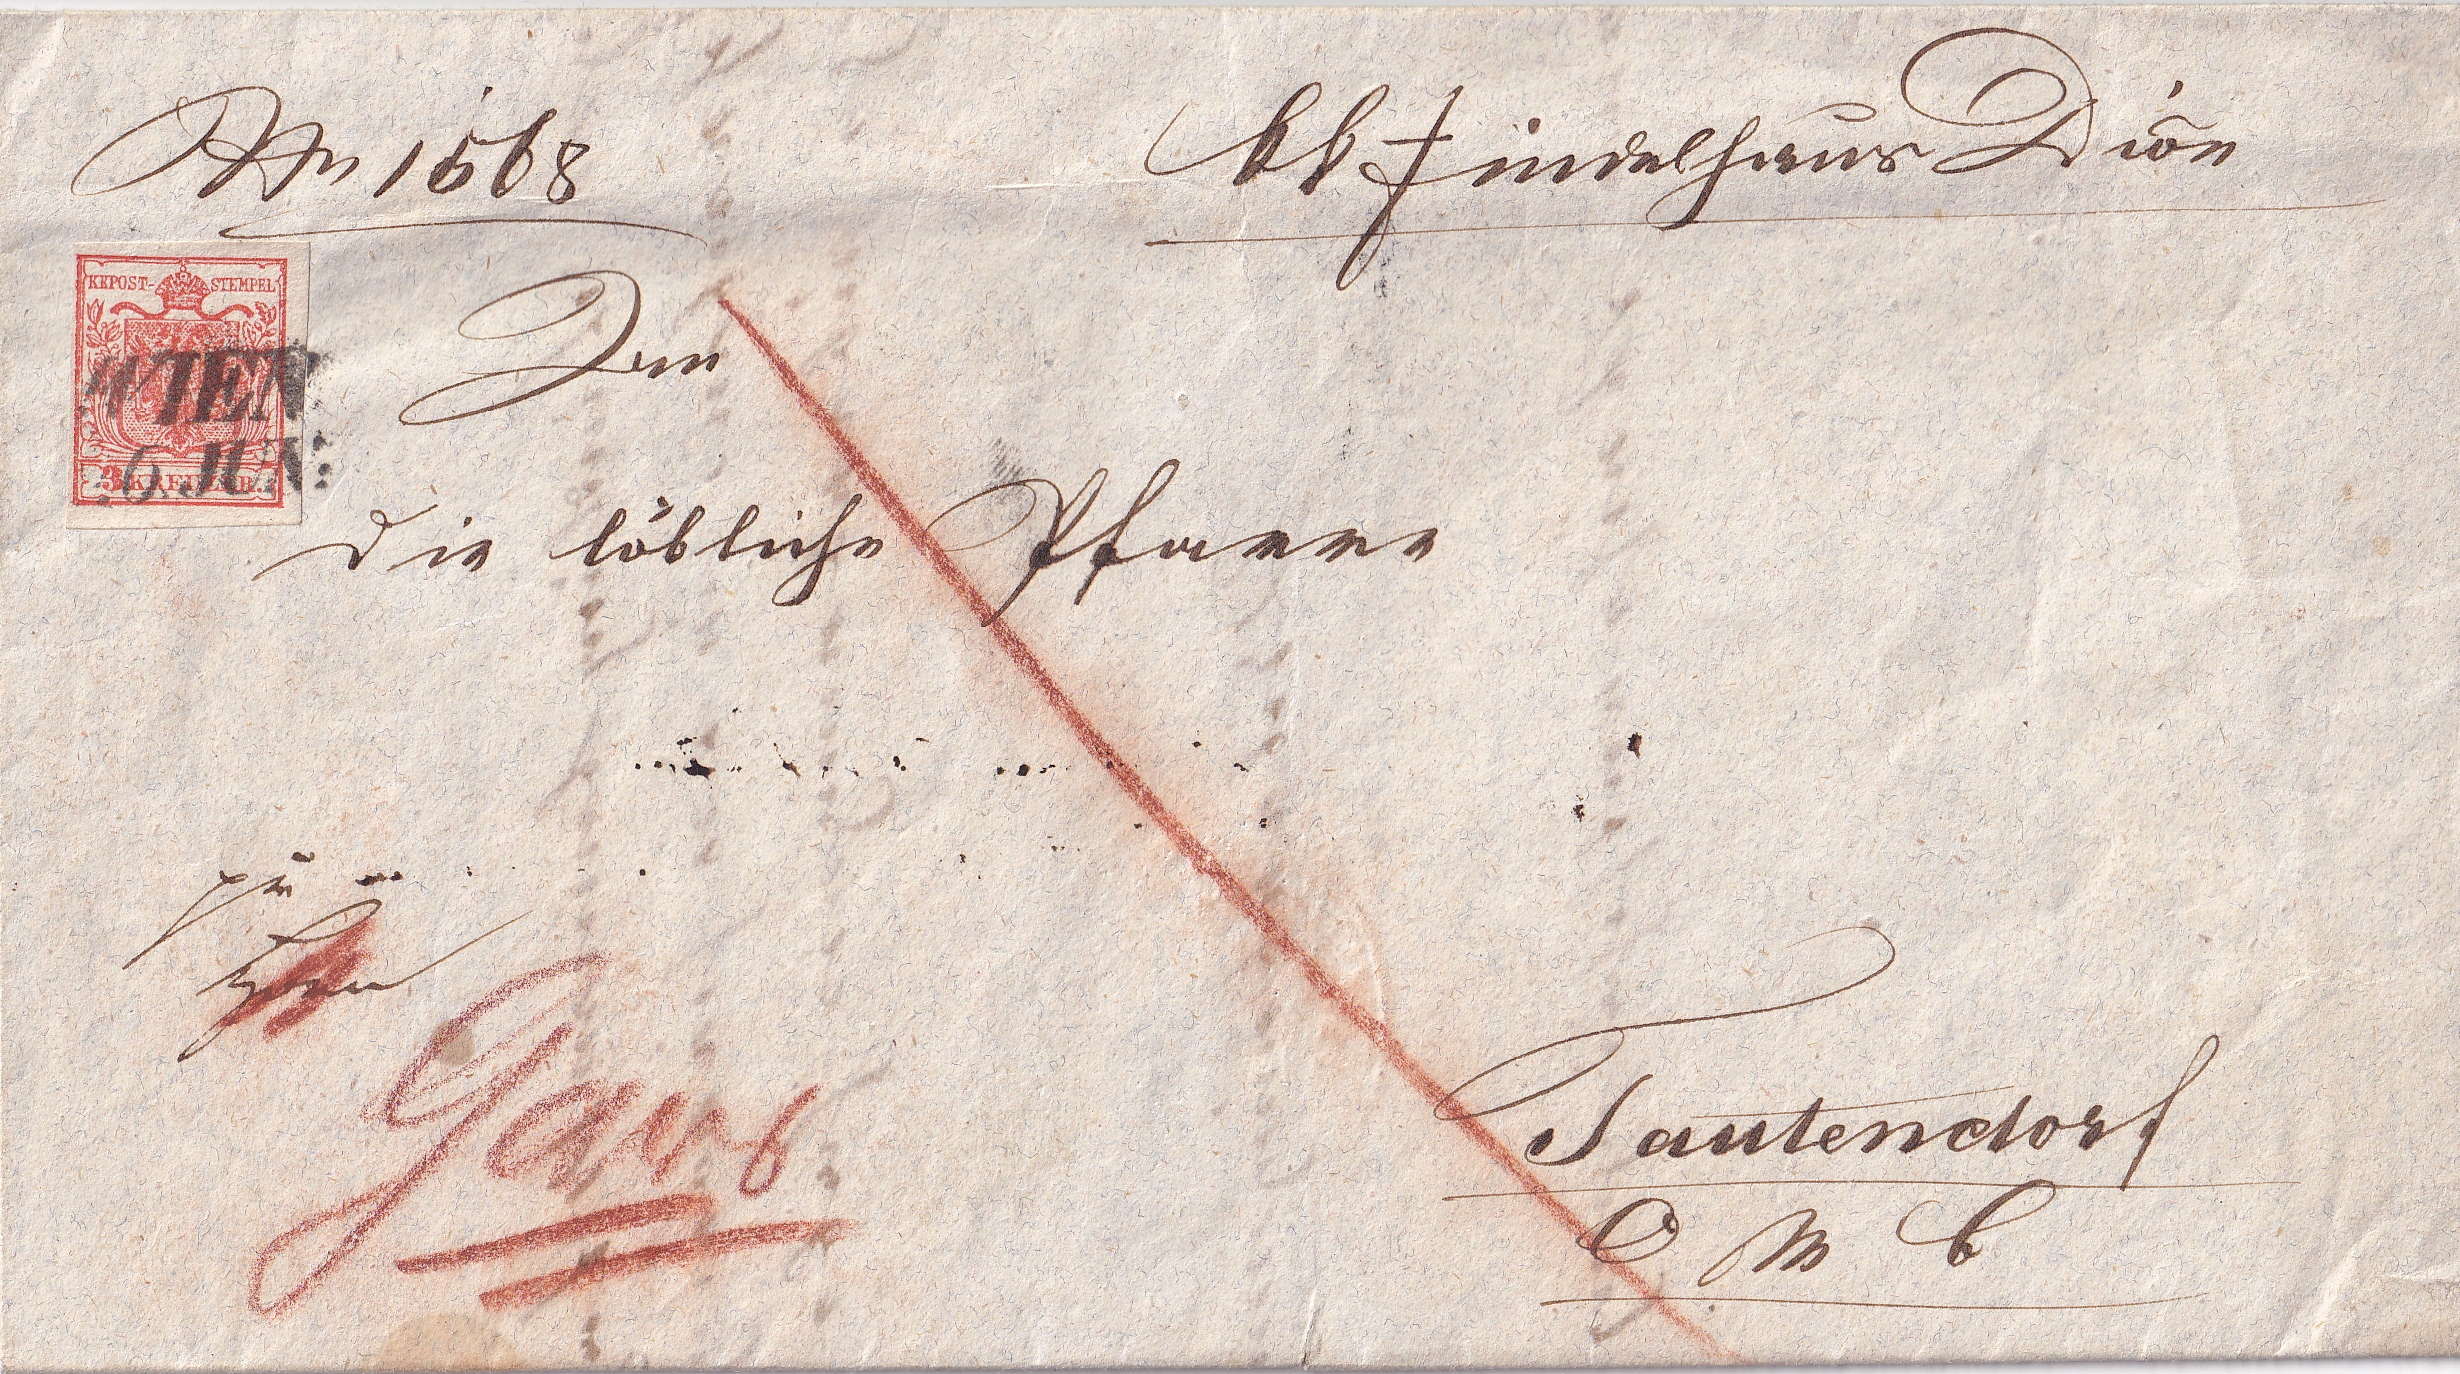 Nr 1568
kk Findelhaus Dion
KKPOST-STEMPEL
WIEN
JUN:
3 KREUZER
An
die löbliche Pfarre
zu
Gars
Tautendorf
O M B